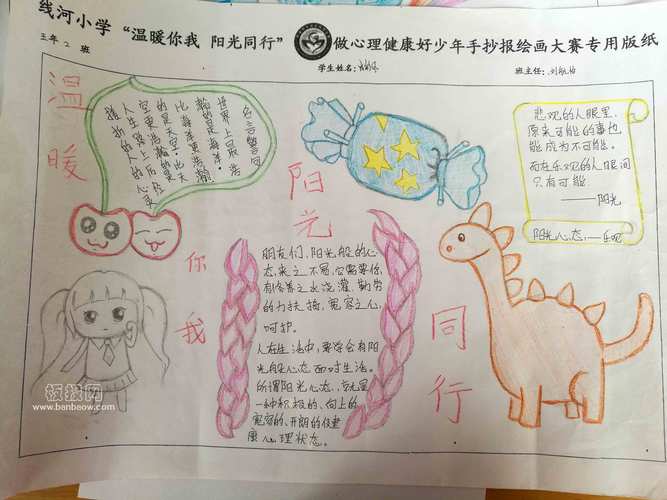 线河小学“温暖你我 阳光同行” 做心理健康好少年手抄报绘画大赛专用版纸
三年 2 班
学生姓名:
班主任:
温暖
名言警句
世界上最浩
瀚的是海洋,
比海洋更浩瀚
的是天空,比天
空更浩瀚的是
人生路上历经
挫折的人的心灵
阳光
你我
同行
朋友们,阳光般的心
态来之不易,它需要你
有修养之水浇灌,勤劳
的力扶持,宽容之心
呵护。
人在生活中,要学会有阳
光般心态面对生活。
所谓阳光心态,
一种积极的、向上的
宽容的、开朗的健
康心理状态。
悲观的人眼里,
原来可能的事也
能成为不可能。
而在乐观的人眼间
只有可能
——阳光
阳光心态,——乐观
板报网
www.banbaow.com